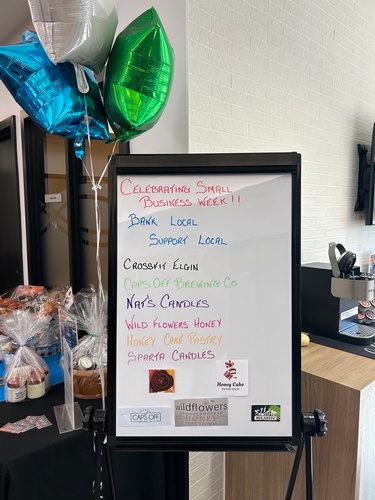 Celebrating Small
Business Week!!
Bank Local
Support Local
Crossfit Elgin
Caps Off Brewing Co.
Nat's Candles
Wild Flowers Honey
Honey Cake Pastry
Sparta Candles
Honey Cake
CAPS OFF
wildflowers
HONEY